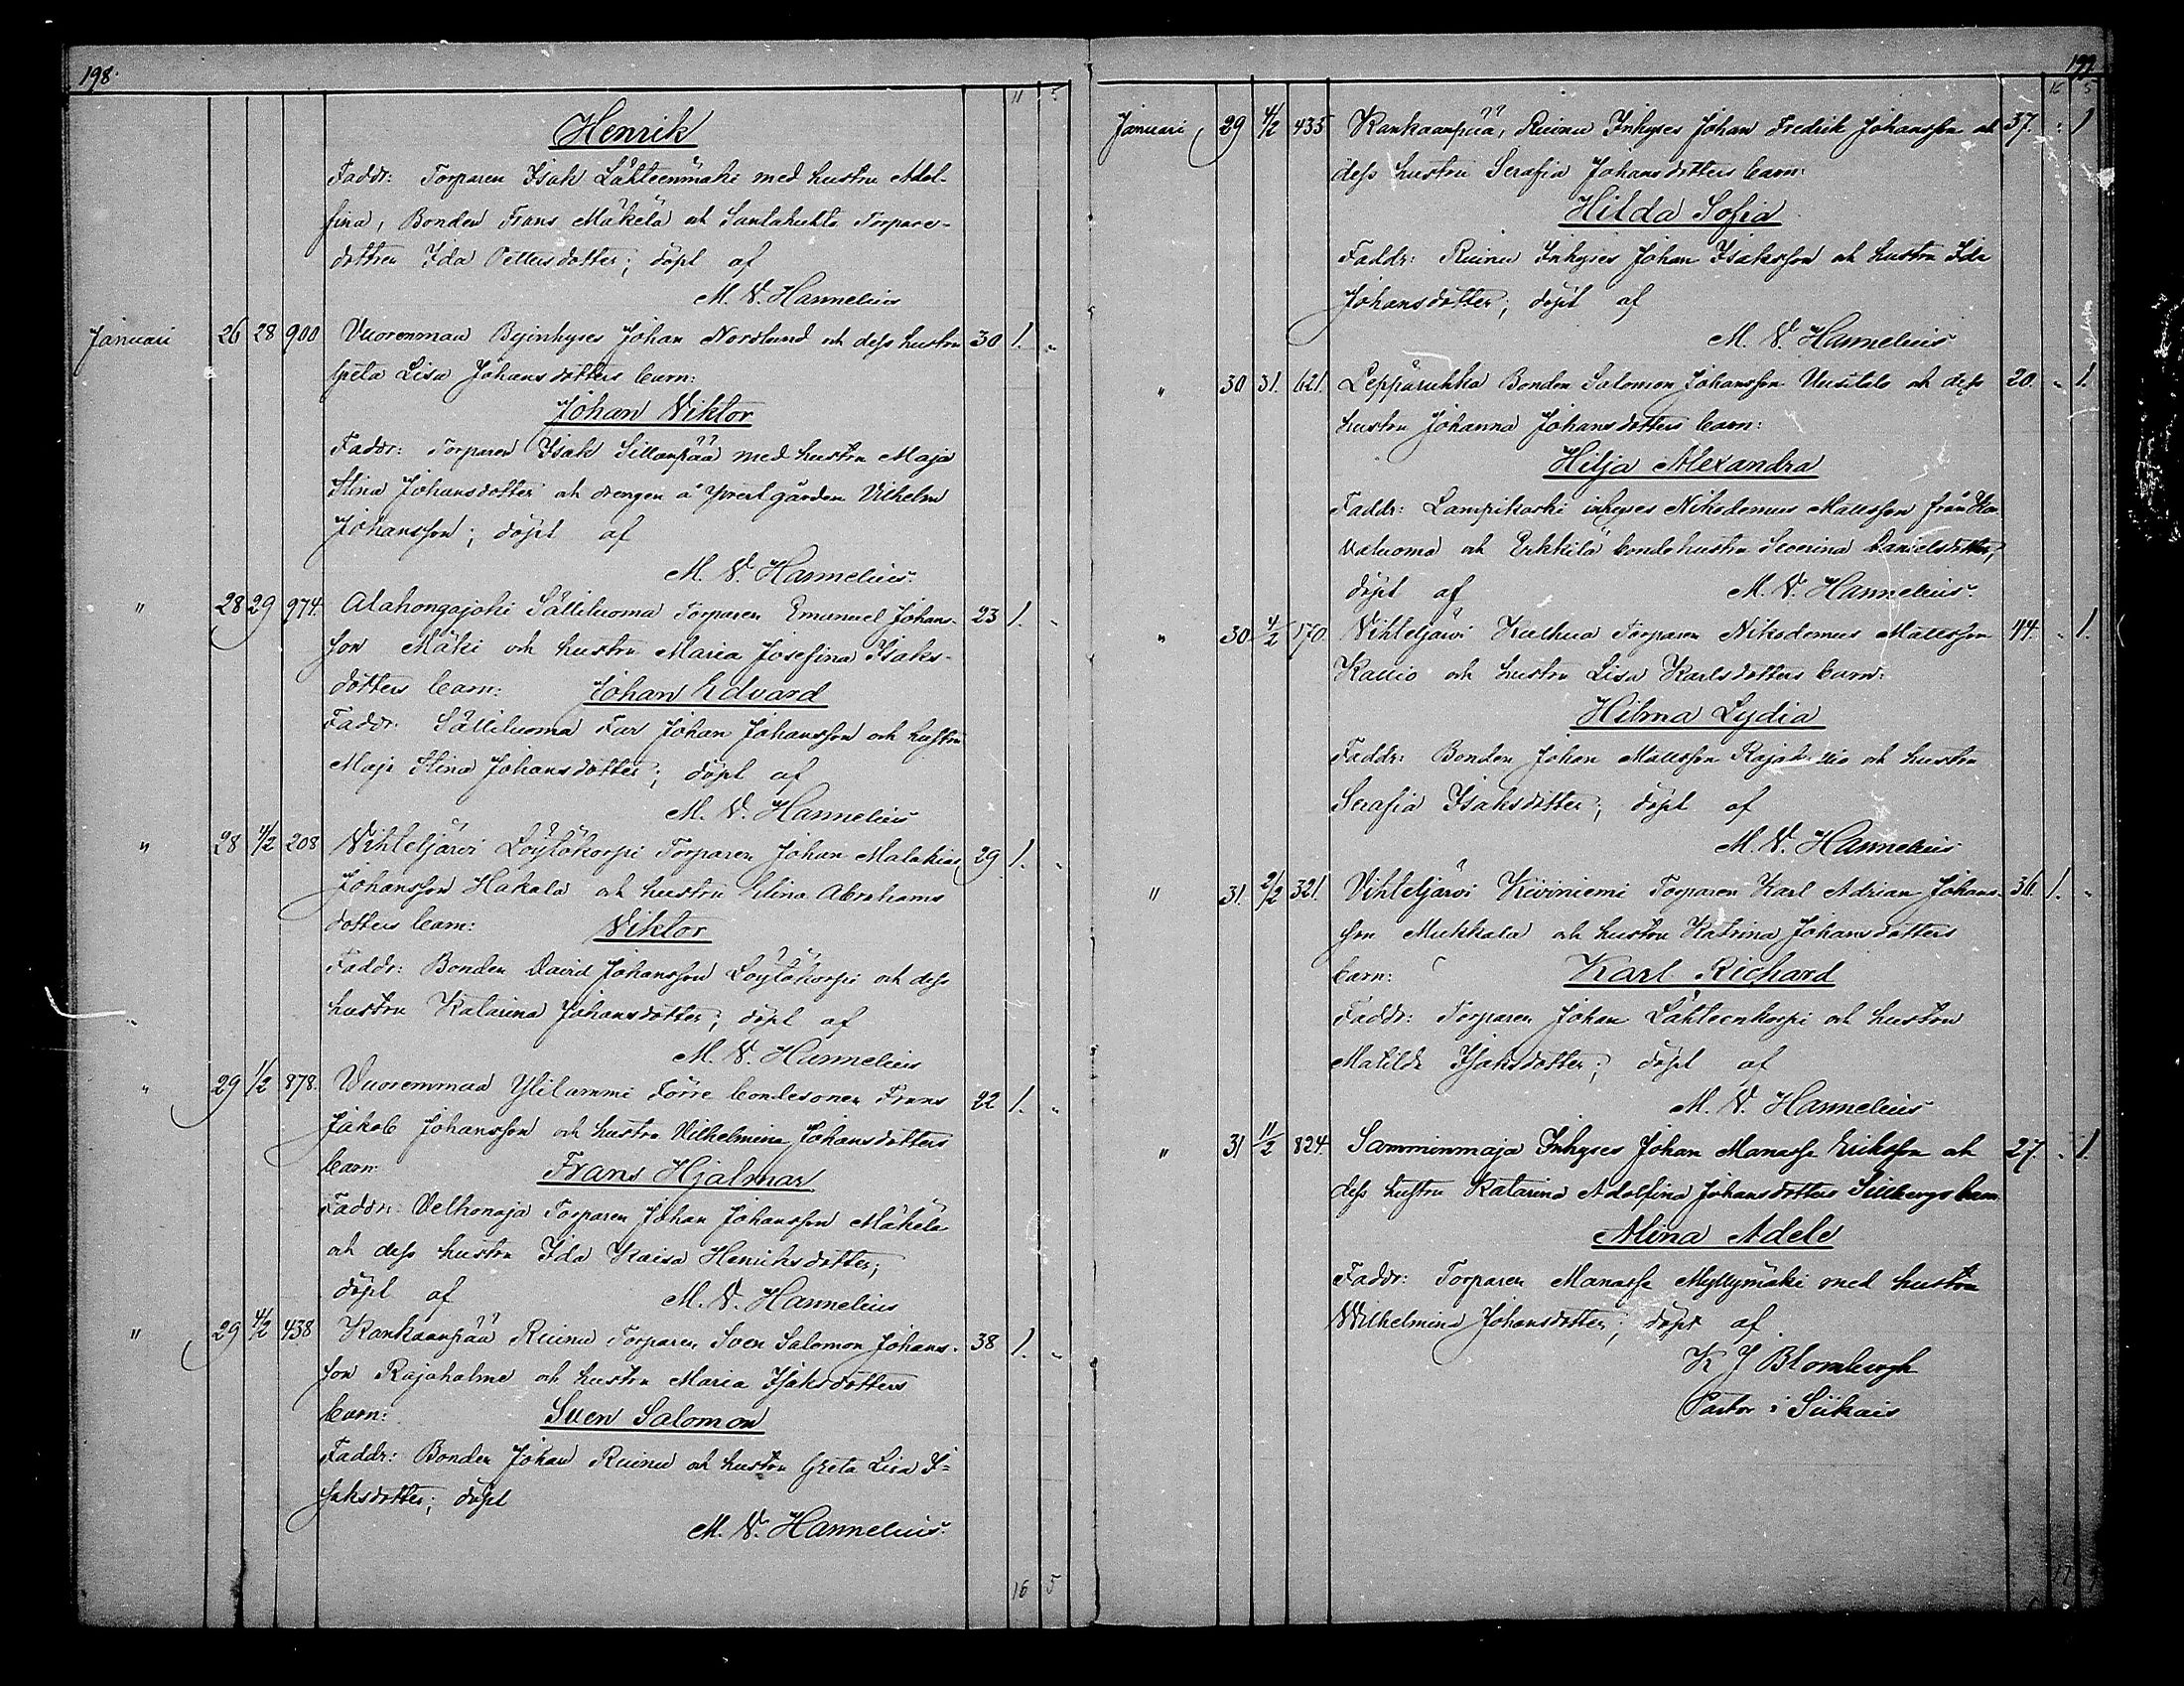 198.
11 5
Henrik
Faddr: Torparen Isak Lähteenmäki med hustru Adol-
fina, Bonden Frans Mäkelä och Santahuhta Torpare-
dottren Ida Pettersdotter; döpt af
M. V. Hannelius
Januari 26 28 900 Vuorenmaa Byinhyses Johan Nordlund och dess hustru 30 1. "
Greta Lisa Johansdotters barn:
Johan Viktor
Faddr: Torparen Isak Sillanpää med hustru Maja
Stina Johansdotter och drengen å Prestgården Vilhelm
Johansson; döpt af
M. V. Hannelius.
" 28 29 974. Alahongajoki Sälliluoma Torparen Emanuel Johans- 23 1. "
son Mäki och hustru Maria Josefina Isaks-
dotters barn: Johan Edvard
Faddr: Sälliluoma Far Johan Johansson och hustru
Maja Stina Johansdotter; döpt af
M. V. Hannelius
" 28 4/2 208 Vihteljärvi Löytökorpi Torparen Johan Malakias 29 1. "
Johansson Hakala och hustru Stina Abrahams
dotters barn: Viktor
Faddr: Bonden David Johansson Löytökorpi och dess
hustru Katarina Johansdotter; döpt af
M. V. Hannelius
" 29 1/2 878. Vuorenmaa Ylilammi Förre bondesonen Frans 22 1. "
Jakob Johansson och hustru Vilhelmina Johansdotters
barn: Frans Hjalmar
Faddr: Velhonoja Torparen Johan Johansson Mäkelä
och dess hustru Ida Kaisa Henriksdotter;
döpt af M. V. Hannelius
" 29 4/2 438 Kankaanpää Ruinu Torparen Sven Salomon Johans- 38 1. "
son Rajahalme och hustru Maria Isaksdotters
barn: Sven Salomon
Faddr: Bonden Johan Ruinu och hustru Greta Lisa I-
saksdotter; döpt
M. V. Hannelius.
16 5
199
16 5
Januari 29 4/2 435 Kankaanpää, Ruinu Inhyses Johan Fredrik Johansson och 37. " 1
dess hustru Serafia Johansdotters barn:
Hilda Sofia
Faddr: Ruinu Inhyses Johan Isaksson och hustru Ida
Johansdotter; döpt af
M. V. Hannelius
" 30 31. 621. Leppäruhka Bonden Salomon Johansson Uusitalo och dess 20. " 1.
hustru Johanna Johansdotters barn:
Hilja Alexandra
Faddr: Lampikoski inhyses Nikodemus Mattsson från Hon
och Erkkilä bondehustru Severina Danielsdotter;
döpt af M. V. Hannelius.
" 30 4/2 170. Vihteljärvi Kulhua Torparen Nikodemus Mattsson 44. " 1.
Kallio och hustru Lisa Karlsdotters barn:
Hilma Lydia
Faddr: Bonden Johan Mattsson och hustru
Serafia Isaksdotter; döpt af
M. V. Hannelius
" 31. 2/2 321. Vihteljärvi Kiviniemi Torparen Karl Adrian Johans- 36. 1. "
son Mukkala och hustru Katrina Johansdotters
barn: Karl Richard
Faddr: Torparen Johan Lähteenkorpi och hustru
Matilda Isaksdotter; döpt af
M. V. Hannelius
" 31 11/2 824. Samminmaja Inhyses Johan Manasse Eriksson och 27. " 1.
dess hustru Katarina Adolfina Johansdotters Sillbergs barn
Alina Adele
Faddr: Torparen Manasse Myllymäki med hustru
Wilhelmina Johansdotter; döpt af
K J Blombergh
Pastor i Siikais
17